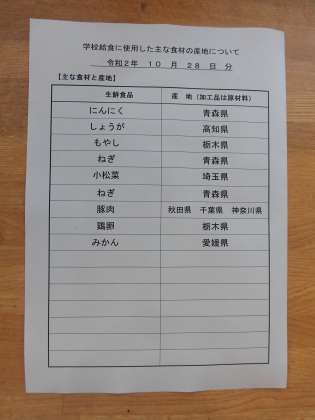 学校給食に使用した主な食材の産地について
令和2年 10 月 28 日 分
【主な食材と産地】
生鮮食品 産 地（加工品は原材料）
にんにく 青森県
しょうが 高知県
もやし 栃木県
ねぎ 青森県
小松菜 埼玉県
ねぎ 青森県
豚肉 秋田県 千葉県 神奈川県
鶏卵 栃木県
みかん 愛媛県